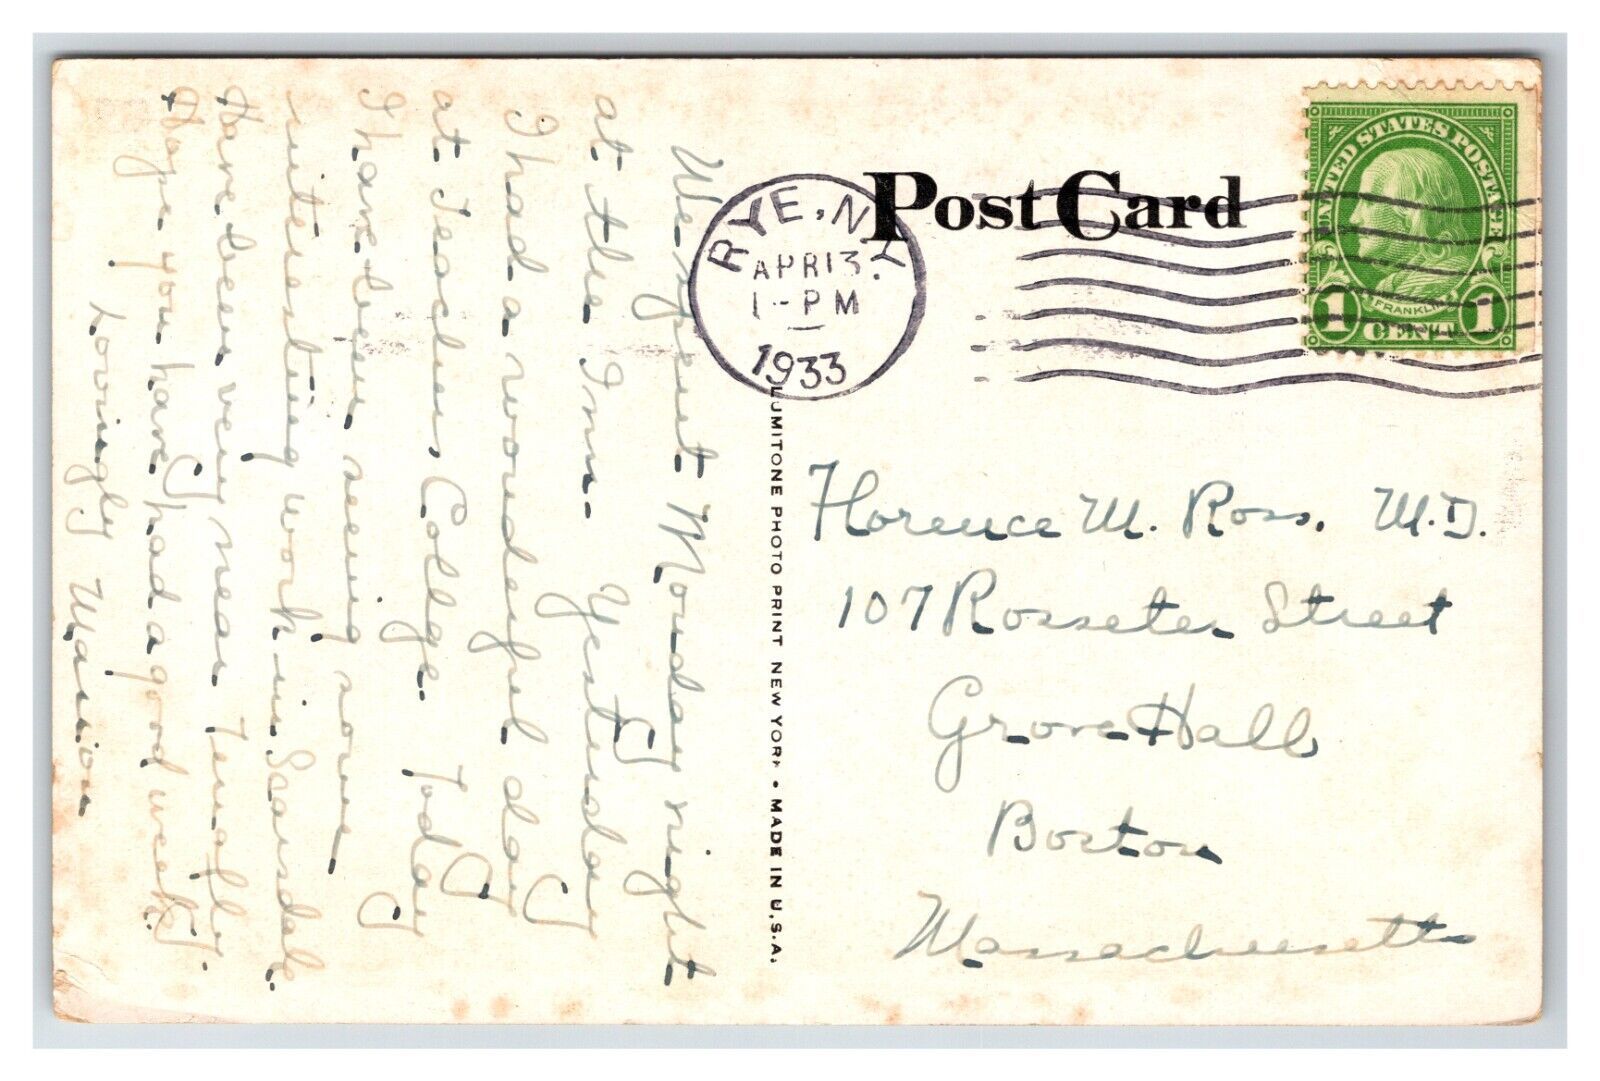 We spent Monday night
at the Inn. Yesterday
I had a wonderful day
at Teachers College. Today
I have been seeing some
interesting work in Scarsdale.
Have been very near Tenafly.
Hope you have had a good week.
Lovingly Marion
Post Card
RYE, N.Y.
APR 13
1-PM
1933
UNITED STATES POSTAGE
FRANKLIN
1 CENT 1
LUMITONE PHOTO PRINT NEW YORK • MADE IN U.S.A.
Florence M. Ross. M.D.
107 Rosseter Street
Grove Hall
Boston
Massachusetts